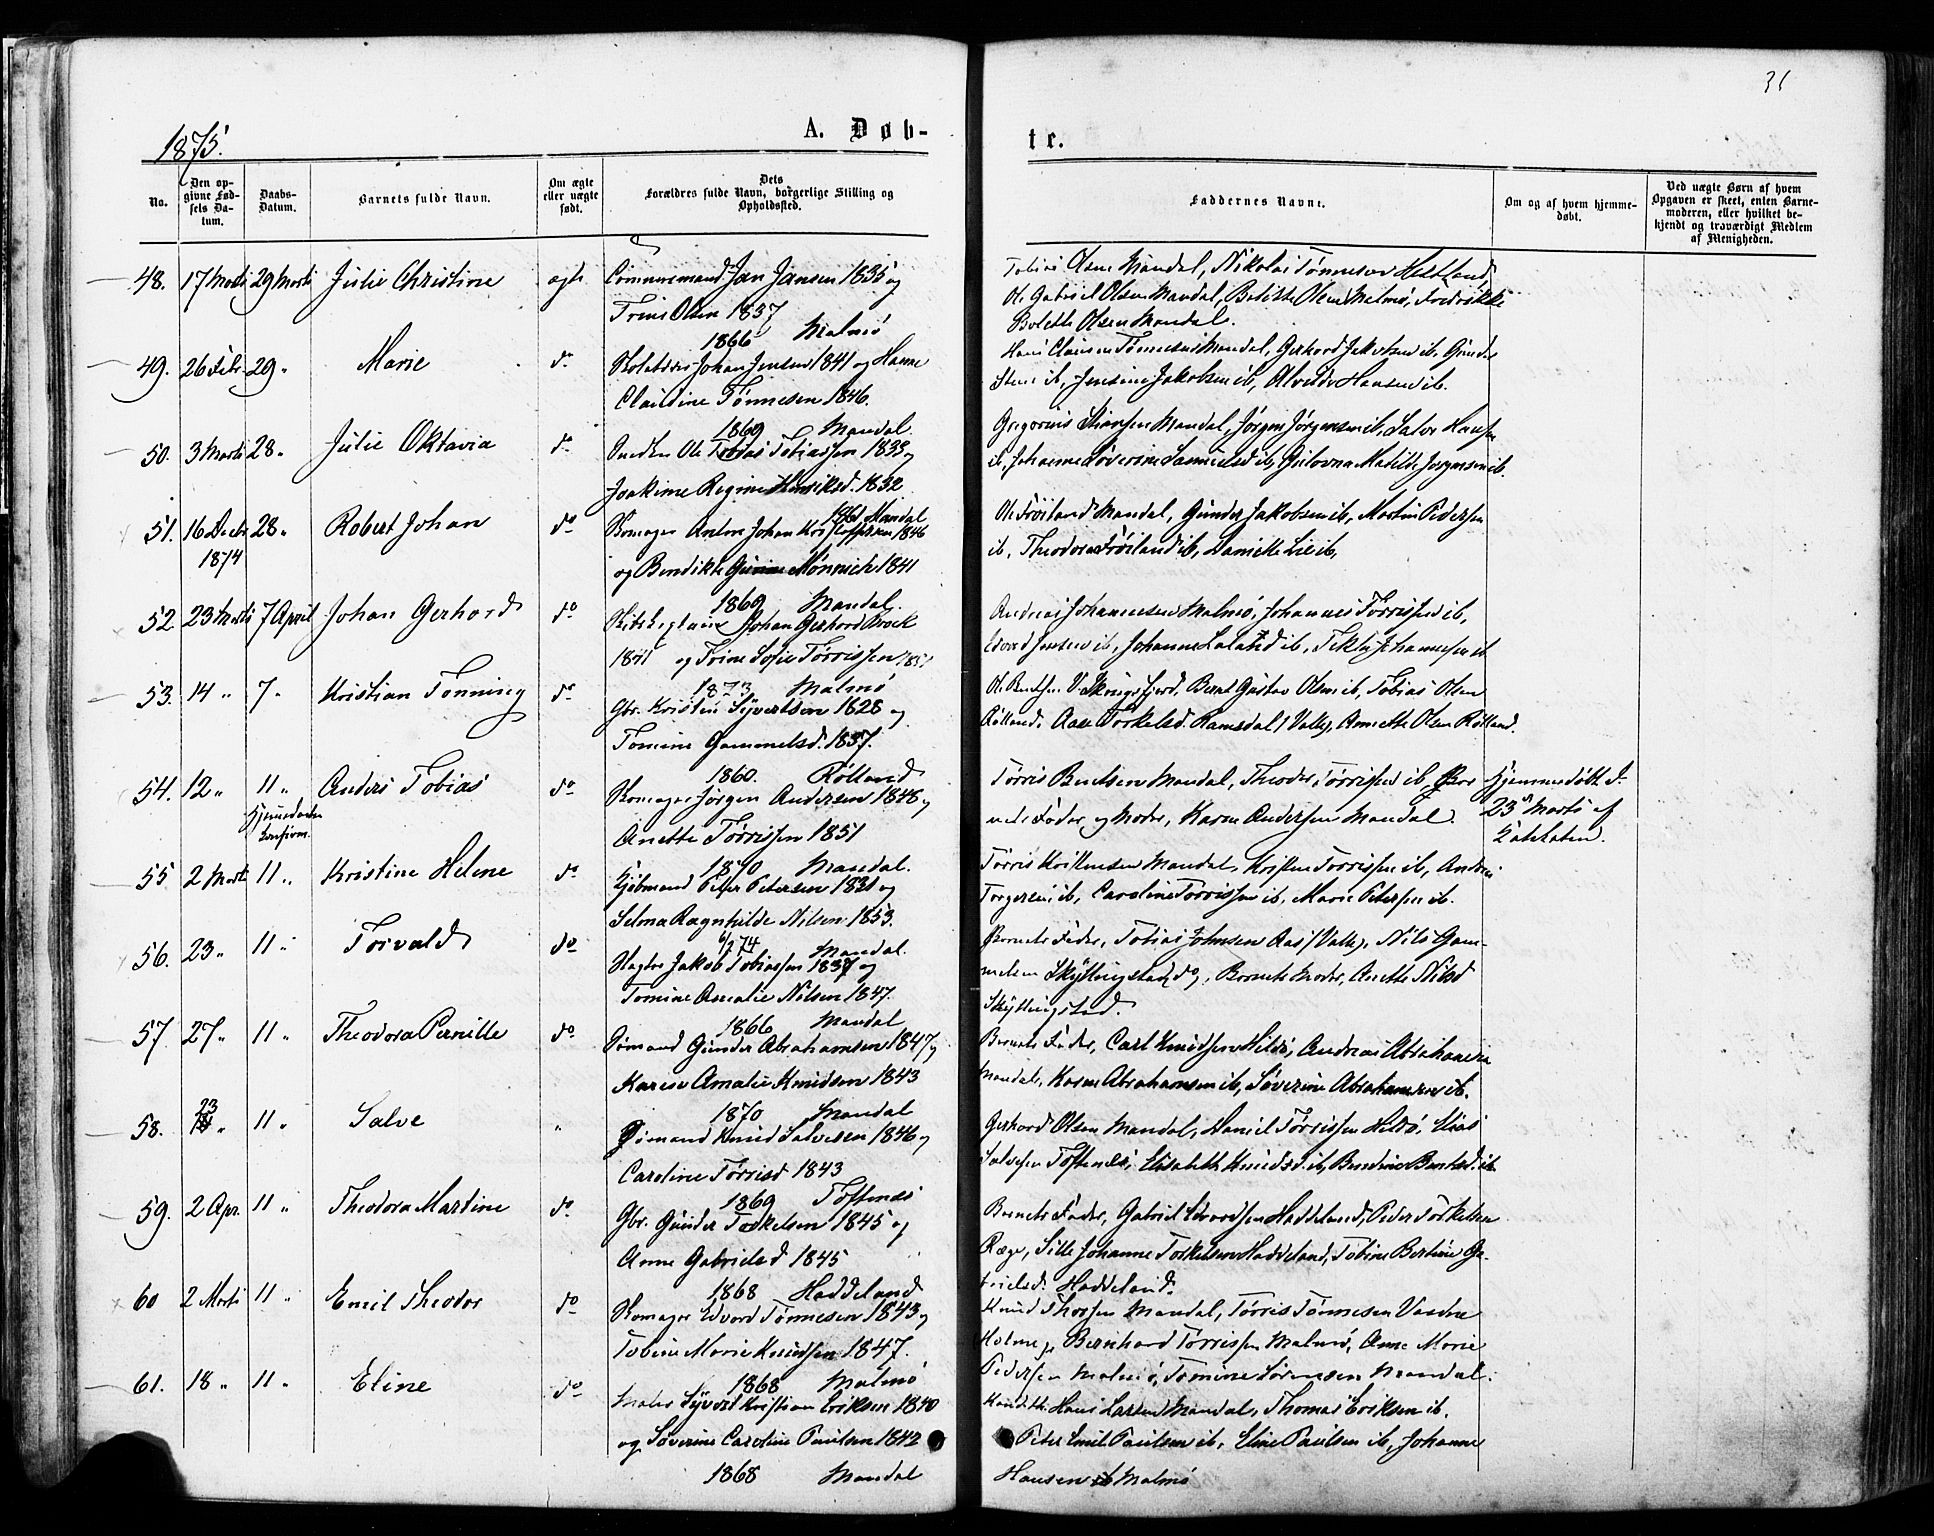 31
1875.
A. Døb-
te.
No.
Den op-
givne Fød-
sels Da-
tum.
Daabs-
Datum.
Barnets fulde Navn.
Om ægte
eller uægte
født.
Dets
Forældres fulde Navn, borgerlige Stilling og
Opholdssted.
Faddernes Navne.
Om og af hvem hjemme-
døbt.
Ved uægte Børn af hvem
Opgaven er skeet, enten Barne-
moderen, eller hvilket be-
kjendt og troværdigt Medlem
af Menigheden.
48. 17 Marti 29 Marti Julie Christine ægte Jan Jansen 1835 og
Trine Olsen 1837
1866 Malmø
Tobias Olsen Mandal, Nikolai Tønnesen
Ole Gabriel Olsen Mandal, Olsen Malmø, Fredrikke
Bolette Olsen Mandal.
49. 26 Febr. 29 " Marie do Johan Jensen 1841 og Hanne
Claudine Tønnesen 1846.
1869 Mandal
Hans Clausen Tønnesen Mandal, Gerhard Jakobsen ib, Gunder
ib, Jensine Jakobsen ib, Hansen ib.
50. 3 Marti 28 " Julie Oktavia do Snedker Ole Tobias Tobiassen 1833 og
Joakime Regine Henriksd. 1832
1861 Mandal
Gregorius Mandal, Jørgen Jørgensen ib, Salve Hansen
ib, Johanne Severine Samuelsd ib, Matilde Jørgensen ib.
51. 16 Decbr 28 " Robert Johan do Skomager Anton Johan Kristoffersen 1846
1874
og Bendikte Gurine Mønnich 1841
1869 Mandal.
Ole Frøiland Mandal, Gunder Jakobsen ib, Martin Pedersen
ib, Theodora Frøiland ib, Lie ib,
52 23 Marti 7 April Johan Gerhard do Johan Gerhard Brock
1841 og Trine Sofie Tørrissen 1851
1873 Malmø
Andreas Johannesen Malmø, Johannes Tørrissen ib,
Jensen ib, Johanne ib, Tekla Johannesen ib
53. 14 " 7 " Kristian Tønning do Gbr. Kristen Syvertsen 1828 og
Tomine Gammelsd. 1837.
1860. Røiland
V. Skrugsfjord, Bernt Gustav Olsen ib, Tobias Olsen
Røiland, Aase Torkelsd. Ramsdal / Valle, Annette Olsen Røiland.
54. 12 " 11 " Anders Tobias do Skomager Jørgen Andersen 1848 og
Hjemmedaaben
Confirm.
Anette Tørrissen 1851
1870 Mandal.
Tørris Bentsen Mandal, Theodor Tørrissen ib, Bar-
nets Fader og Moder, Karen Andersen Mandal.
Hjemmedøbt d.
23 Marts af
Kateketen.
55. 2 Marti 11 " Kristine Helene do Kjøbmand Peter Petersen 1831 og
Selma Ragnhilde Nilsen 1853.
6/2 74 Mandal.
Tørris Kristensen Mandal, Kristen Tørrissen ib, Andreas
Torgersen ib, Caroline Tørrissen ib, Marie Petersen ib.
56. 23 " 11 " Torvald do Slagter Jakob Tobiassen 1837 og
Tomine Amalie Nilsen 1847.
1866 Mandal
Barnets Fader, Tobias Johnsen Aas / Valle, Nils Gam-
melsen Skyllingstad do, Barnets Moder, Anette Nilsd
Skyllingstad.
57. 27 " 11 " Theodora Pernille do Sømand Gunder Abrahamsen 1847 og
Karen Amalie Knudsen 1843
1870 Mandal
Barnets Fader, Carl Knudsen Hildø, Andreas Abrahamsen
Mandal, Karen Abrahamsen ib, Severine Abrahamsen ib.
58. 23 " 11 " Salve " Sømand Knud Salvesen 1846 og
Caroline Tørrisd 1843
1869 Toftenes
Gerhard Olsen Mandal, Daniel Tørrissen Hildø, Elias
Salvesen Toftenes, Elisabeth Knudsd. ib, Bendine Bentsd. ib
59. 2 Apr. 11 " Theodora Martine do Gbr. Gunder Torkelsen 1845 og
Anne Gabrielsd 1845
1868 Haddeland
Barnets Fader, Gabriel Haddeland, Peder Torkelsen
Ræge, Sille Johanne Torkelsen Haddeland, Tobine Bertine Ga-
brielsd. Haddeland.
60 2 Marti 11 " Emil Theodor do Skomager Edvard Tønnesen 1843 og
Tobine Marie Knudsen 1847.
1868 Malmø
Knud Mandal, Tørris Tønnesen
Bernhard Tørrissen Malmø, Anne Marie
Pedersen Malmø, Tomine Sørensen Mandal.
61. 18 " 11 " Eline do Maler Syvert Kristian Eriksen 1840
og Severine Caroline Paulsen 1842
1868 Mandal
Hans Larsen Mandal, Thomas Eriksen ib.
Peter Emil Paulsen ib, Eline Paulsen ib, Johanne
Hansen ib Malmø